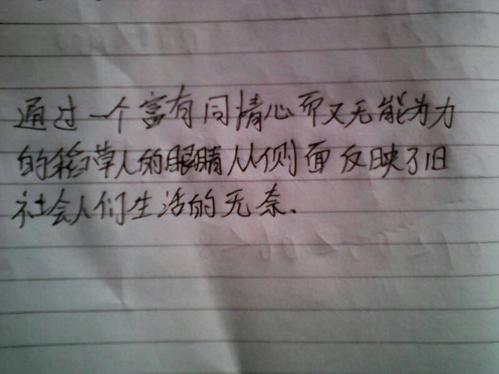 通过一个富有同情心而又无能为力
的稻草人的眼睛从侧面反映了旧
社会人们生活的无奈.